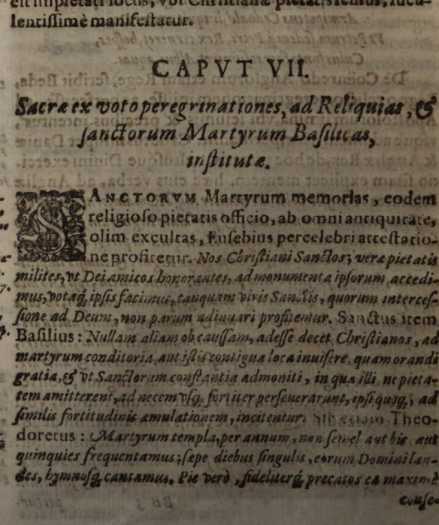 lentissimè manifestatur.
CAPVT VII.
Sacræ ex voto peregrinationes, ad Reliquias, &
sanctorum Martyrum Basilicas,
institutæ.
SANCTORVM Martyrum memorias, eodem
religioso pietatis officio, ab omni antiquitate,
olim excultas, Eusebius percelebri attestatio-
ne profitetur. Nos Christiani Sanctos, veræ pietatis
milites, vt Dei amicos honorantes, ad monumenta ipsorum accedi-
mus, votaq; ipsis facimus, tanquam viris Sanctis, quorum interces-
sione ad Deum, non parum adiuuari profitemur. Sanctus item
Basilius: Nullam aliam ob caussam, adesse decet Christianos, ad
martyrum conditoria, aut istis contigua loca inuisere, quam orandi
gratia, & vt Sanctorum constantia admoniti, in qua illi, ne pieta-
tem amitterent, ad necem vsq; fortiter perseuerarunt, ipsi quoq;, ad
similis fortitudinis æmulationem, incitentur. Theo-
doretus: Martyrum templa, per annum, non semel aut bis aut
quinquies frequentamus; sæpe diebus singulis, eorum Domini lau-
des, hymnosq; cantamus. Pie verò, fideliterq; precatos ea maximè
conse-